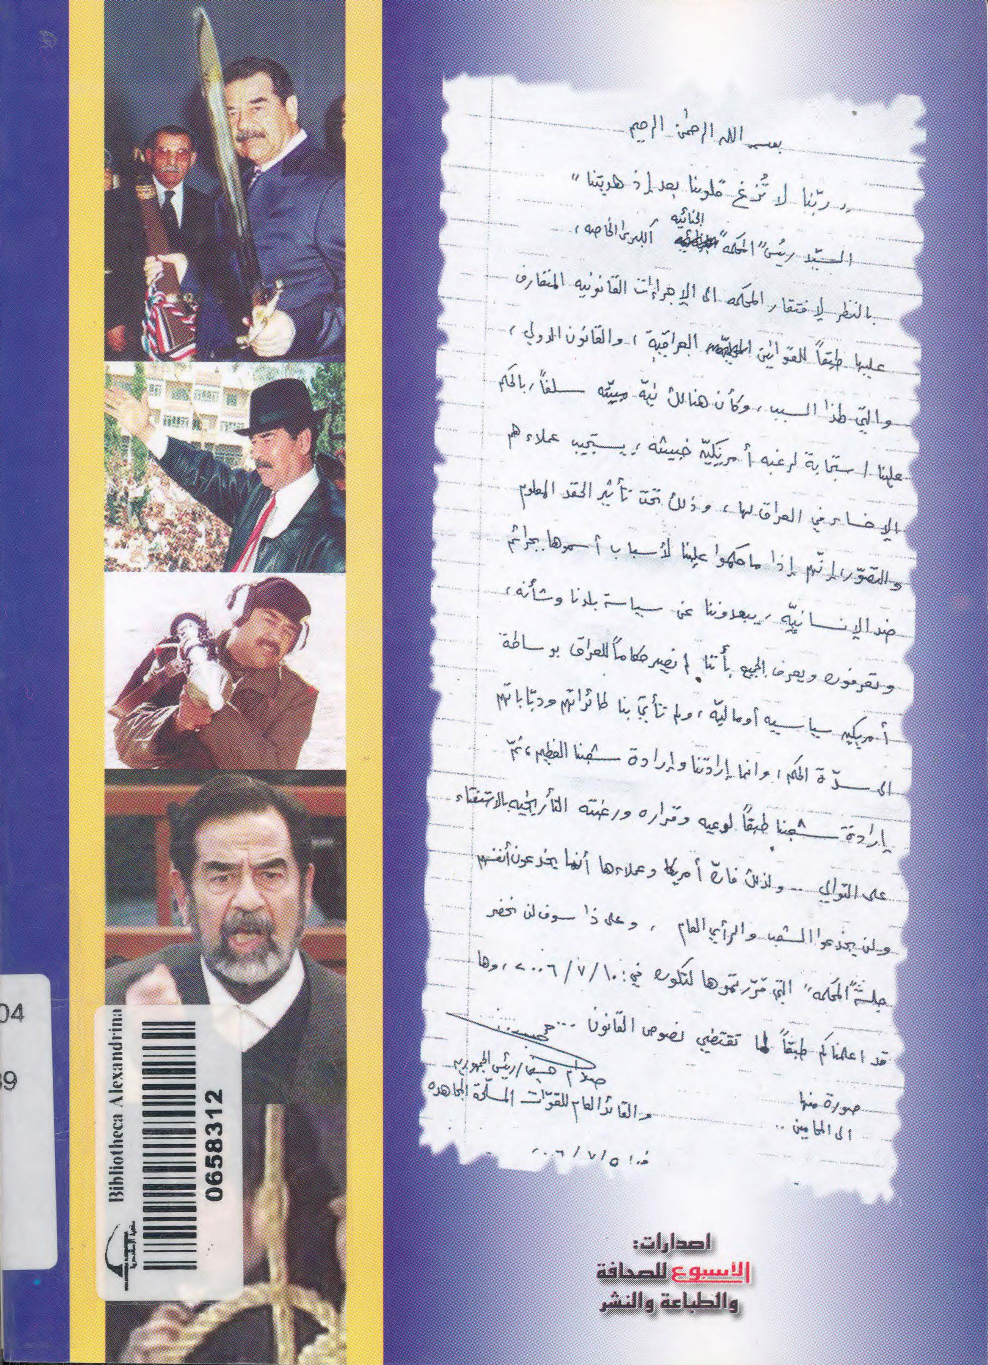 بسم الله الرحمن الرحيم
"ربّنا لا تُزغ قلوبنا بعد إذ هديتنا"
السيّد رئيس "المحكمة" الجنائيه الكبرى الخاصه،
بالنظر لافتقار المحكمه الى الإجراءات القانونيه المتعارف
عليها طبقاً للقوانين العراقيّة، والقانون الدولي،
والتي لهذا السبب، وكأن هنالك نيّة مبيّته سلفاً، بالحكم
علينا استجابة لرغبه أمريكيّه خبيثه، يستجيب عملاءهم
الاخساء في العراق لها، وذلك تحت تأثير الحقد المعلوم
والتصوّر، إنّهم إذا ما حكموا علينا لأسباب أسموها بجرائم
ضد الإنسانيّه، يبعدوننا عن سياسة بلدنا وشأنه،
وتعرفون ويعرف الجميع بأننا لم نصير حكاماً للعراق بوساطة
أمريكيه سياسيه أو ماليّه، ولم تأتي بنا طائراتهم ودبّاباتهم
الى سدّة الحكم، وانما إرادتنا وإرادة شعبنا العظيم، ثمّ
إرادة شعبنا طبقاً لوعيه وقراره ورغبته التأريخيه بالاستفتاء
على التوالي .. ولذلك فإنّ أمريكا وعملاءها أنما يخدعون أنفسهم
ولن يخدعوا الشعب والرأي العام، وعلى ذا سوف لن نحضر
جلسة "المحكمه" التي قرّرتموها لتكون في: ١٠/٧/٢٠٠٦، وها
قد اعلمناكم طبقاً لما تقتضي نصوص القانون ...
صدّام حسين/رئيس الجمهوريه
والقائد العام للقوّات المسلّحة المجاهده
صورة منها
الى المحامين ..
في: ٥/٧/٢٠٠٦
اصدارات:
الأسبوع للصحافة
والطباعة والنشر
04
39
Bibliotheca Alexandrina
مكتبة الإسكندرية
0658312